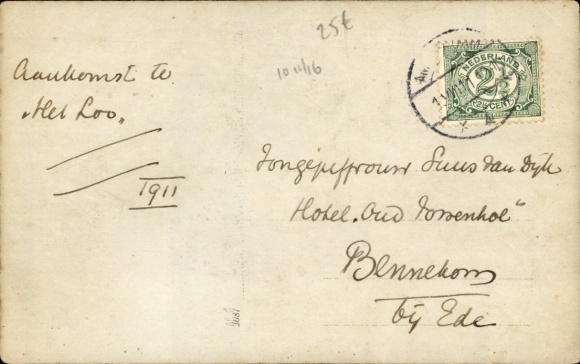 25€
10 11/16
Aankomst te
„Het Loo"
1911
NEDERLAND
2½
2½ CENT
Jongejuffrouw Suus van Dijk
Hotel „Oud
Bennekom
bij Ede